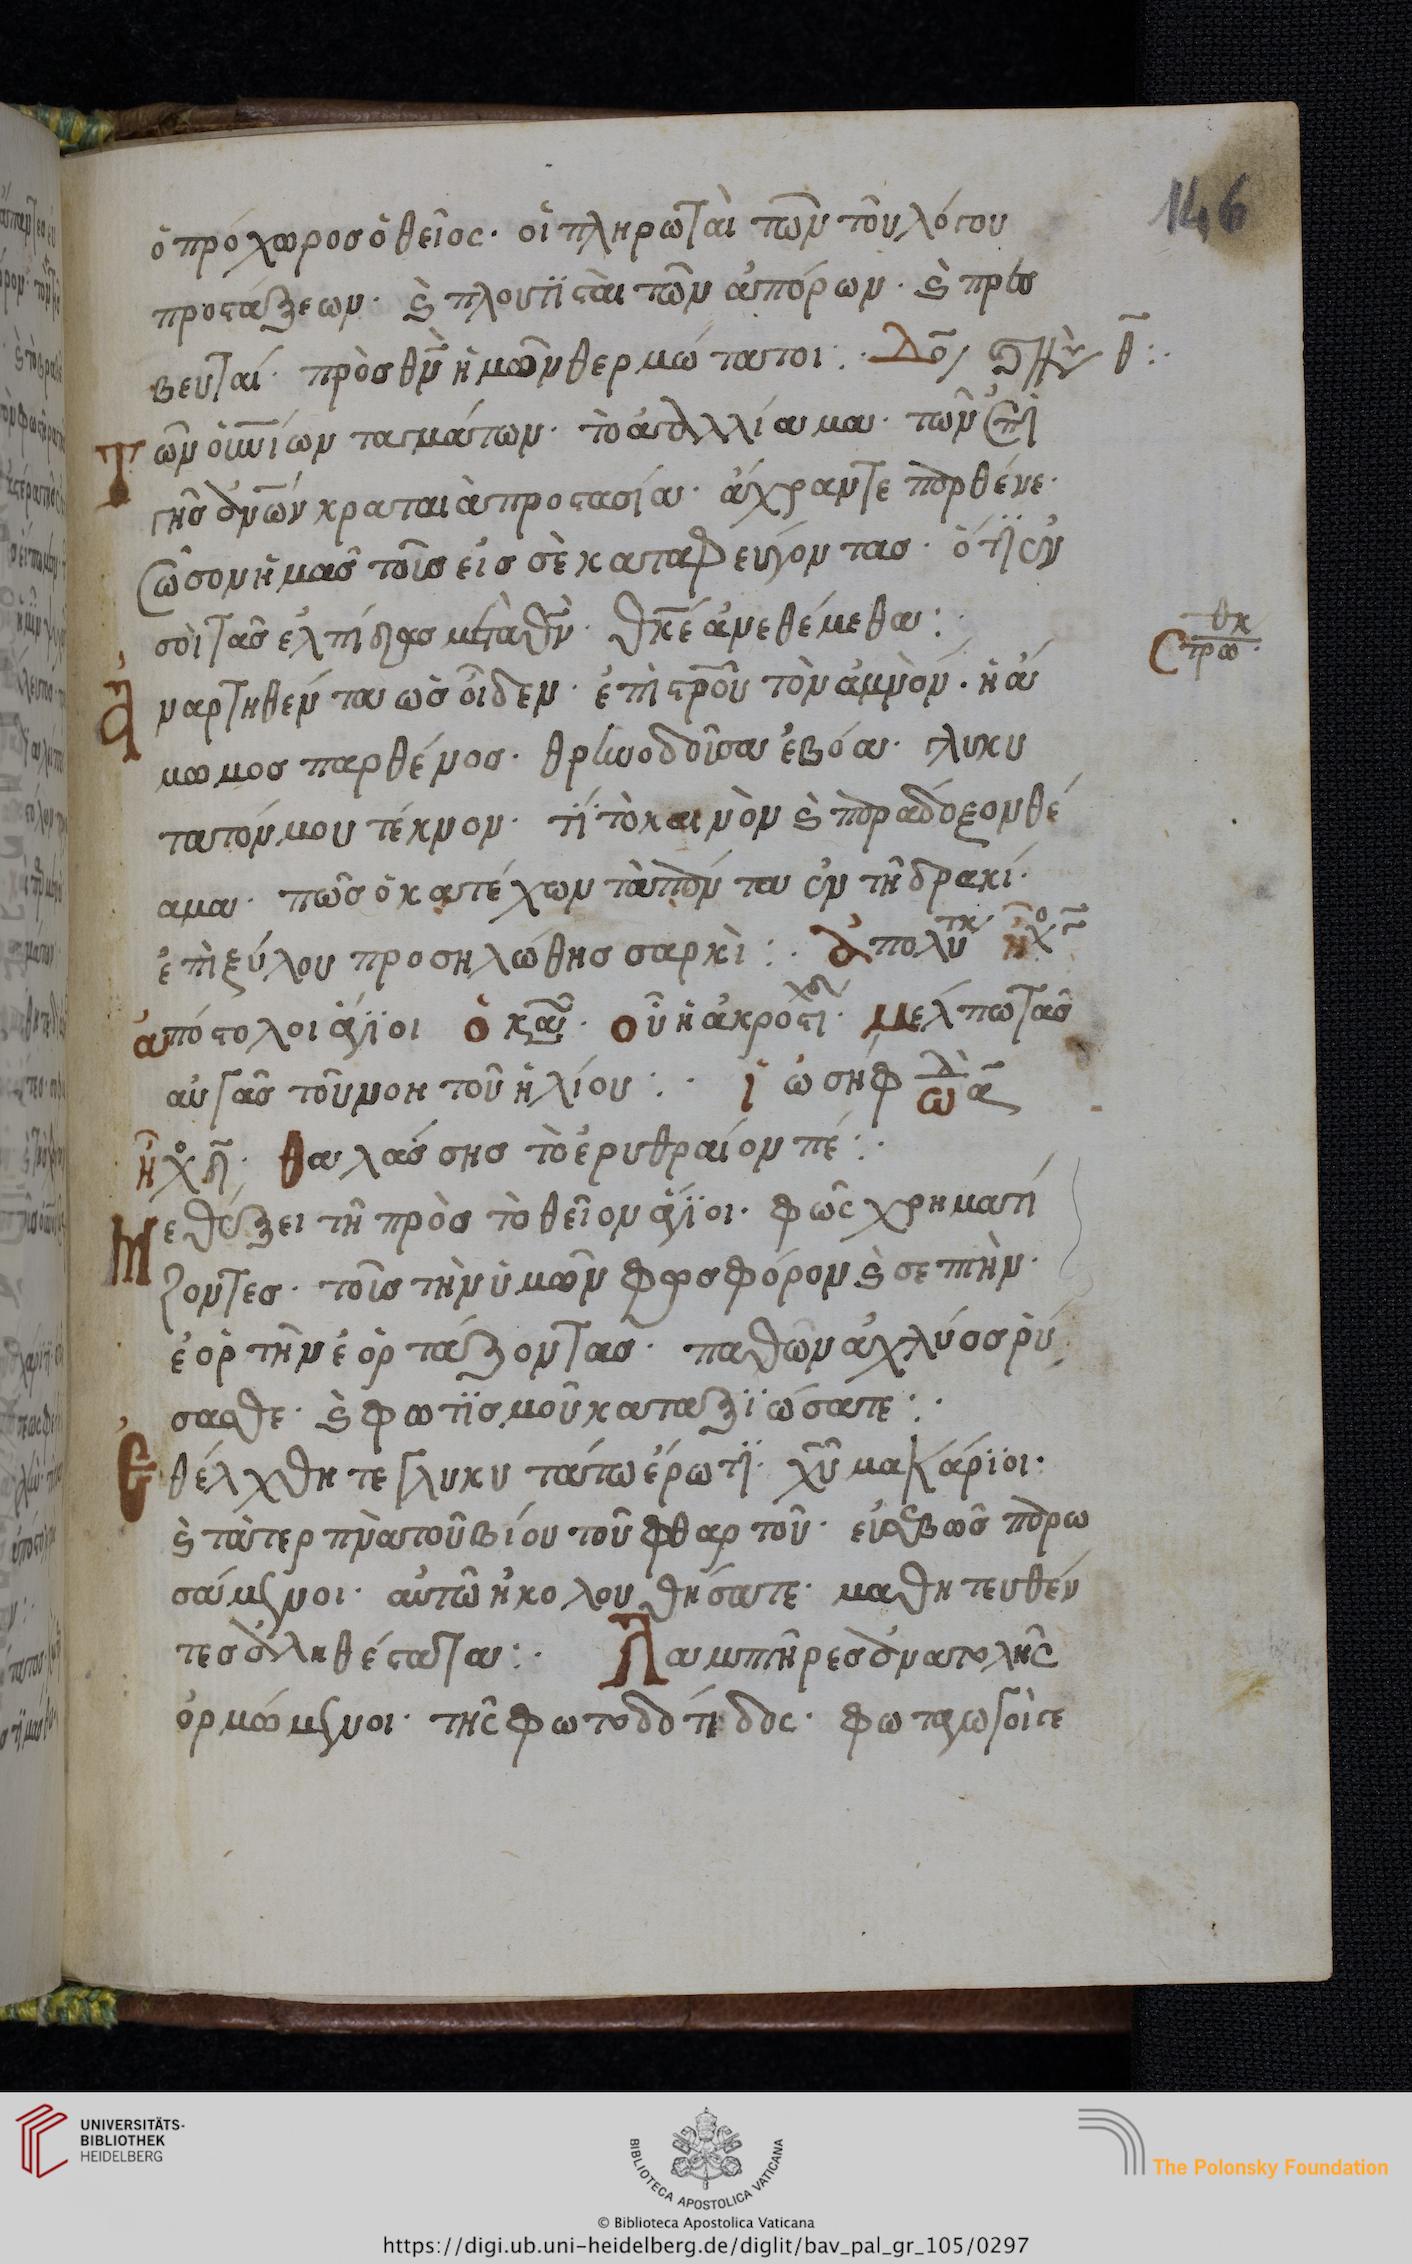 146
ὁ πρόχωρος ὁ θεῖος· οἱ πληρωταὶ τῶν τοῦ λόγου
προστάξεων· καὶ πλουτισταὶ τῶν ἀπόρων· καὶ πρεσ
βευταί· πρὸς θν ἡμῶν θερμώτατοι:·
Τῶν οὐνίων ταγμάτων· τὸ ἀγαλλίαμα· τῶν ἐπὶ
γῆς ἀνων κραταιὰ προστασία· ἄχραντε παρθένε·
σῶσον ἡμᾶς τοὺς εἰς σὲ καταφεύγοντας· ὅτι ἐν
σοὶ τὰς ἐλπίδας μετὰ θν· θκε ἀνεθέμεθα:·
θκ
στρω
Ἀναρτηθέντα ὡς οἶδεν· ἐπὶ στροῦ τὸν ἀμνὸν· ἡ ἄ
μωμος παρθένος· θρηνοδοῦσα ἐβόα· γλυκύ
τατόν μου τέκνον· τί τὸ καινὸν καὶ παράδοξον θέ
αμα· πῶς ὁ κατέχων τὰ πάντα ἐν τῇ δρακί·
ἐπὶ ξύλου προσηλώθης σαρκὶ:· ἀπολυτκ ἦχ γ
ἀπόστολοι ἅγιοι ὁ καν· οὗ ἡ ἀκροστιχ· μέλπω τὰς
αὐγὰς τοῦ νοητοῦ ἡλίου:· ἰωσήφ ὠδὴ α
ἦχ δ· θαλάσσης τὸ ἐρυθραίον πέ:·
Μεθέξει τῇ πρὸς τὸ θεῖον ἅγιοι· φῶς χρηματί
ζοντες· τοὺς τὴν ὑμῶν φωσφόρον καὶ σεπτὴν·
ἑορτὴν ἑορτάζοντας· παθῶν ἀχλύος ῥύ
σασθε· καὶ φωτισμοῦ καταξιώσατε:·
Ἐθέλχθητε γλυκυτάτω ἔρωτι· χυ μακάριοι·
καὶ τὰ τερπνὰ τοῦ βίου τοῦ φθαρτοῦ· εὐσεβῶς παρω
σάμενοι· αὐτῶ ἠκολουθήσατε· μαθητευθέν
τες ἀληθέστατα:· Λαμπτῆρες ἀνατολῆς
ὁρμώμενοι· τῆς φωτοδότιδος· φωταγωγοῖτε
UNIVERSITÄTS-
BIBLIOTHEK
HEIDELBERG
BIBLIOTECA APOSTOLICA VATICANA
The Polonsky Foundation
© Biblioteca Apostolica Vaticana
https://digi.ub.uni-heidelberg.de/diglit/bav_pal_gr_105/0297